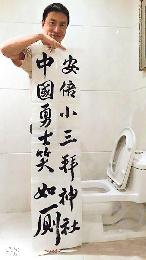 安倍小三拜神社
中國勇士笑如厕